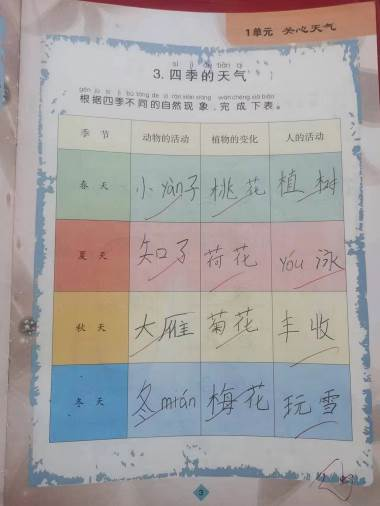 1单元 关心天气
sì jì de tiān qì
3.四季的天气
gēn jù sì jì bù tóng de zì rán xiàn xiàng wán chéng xià biǎo
根据四季不同的自然现象,完成下表。
季 节 动物的活动 植物的变化 人的活动
春 天 小yàn子 桃花 植树
夏 天 知了 荷花 yóu泳
秋 天 大雁 菊花 丰收
冬 天 冬mián 梅花 玩雪
3